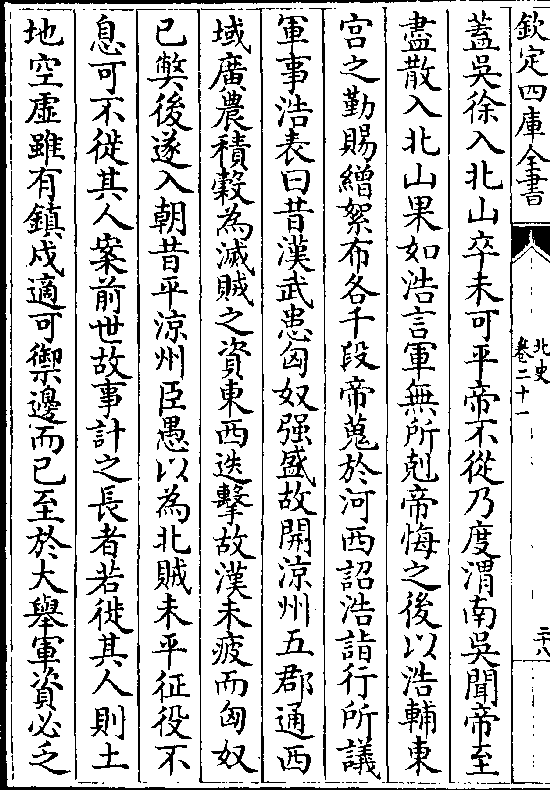 欽定四庫全書
北史
卷二十一
二十八
蓋吳徐入北山卒未可平帝不從乃度渭南吳聞帝至
盡散入北山果如浩言軍無所剋帝悔之後以浩輔東
宮之勤賜繒絮布各千段帝蒐於河西詔浩詣行所議
軍事浩表曰昔漢武患匈奴强盛故開涼州五郡通西
域廣農積穀為滅賊之資東西迭擊故漢未疲而匈奴
已獘後遂入朝昔平涼州臣愚以為北賊未平征役不
息可不徙其人案前世故事計之長者若徙其人則土
地空虛雖有鎮戍適可禦邊而已至於大舉軍資必乏